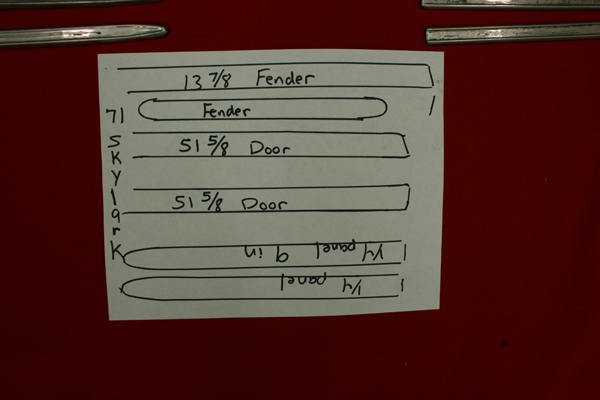 13 7/8 Fender
Fender
51 5/8 Door
51 5/8 Door
1/4 panel 9 in
1/4 panel
71 Skylark